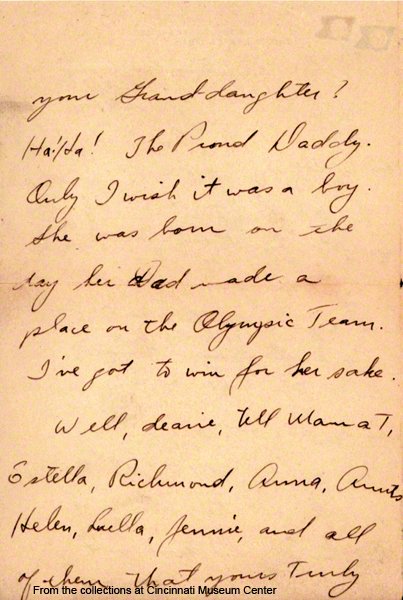 your Grand-daughter?
Ha! Ha! The Proud Daddy.
Only I wish it was a boy.
She was born on the
day her Dad made a
place on the Olympic Team.
I've got to win for her sake.
Well, dearie, tell Mama T,
Estella, Richmond, Anna, Aunts
Helen, Luella, Jennie, and all
of them that yours Truly
From the collections at Cincinnati Museum Center